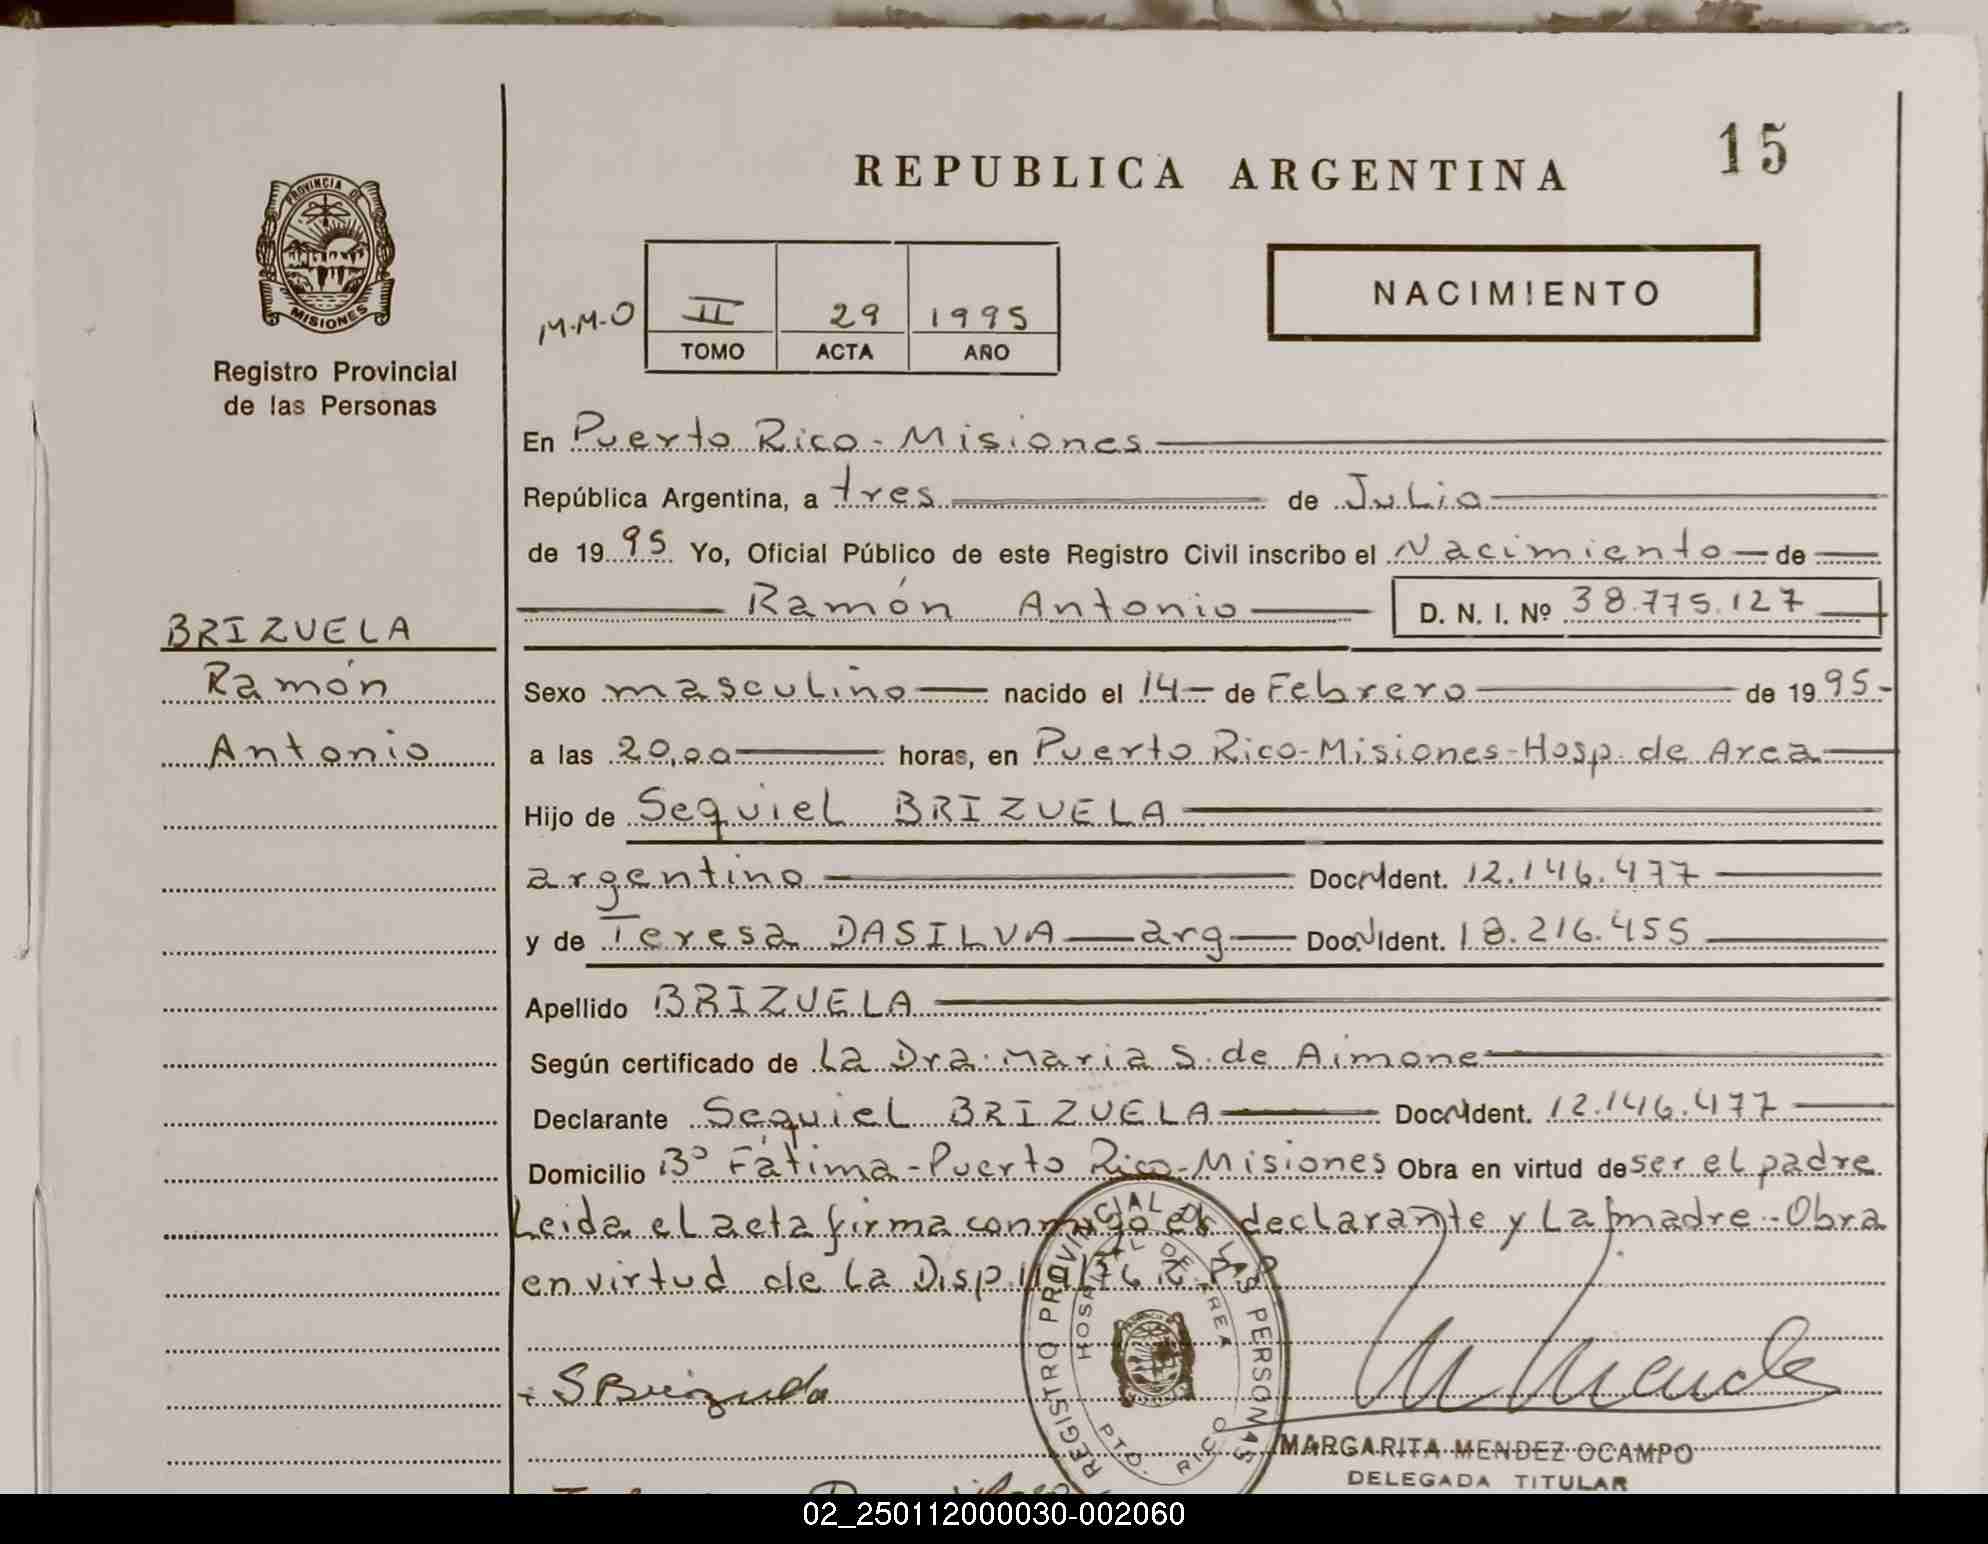 REPUBLICA ARGENTINA
15
PROVINCIA DE
MISIONES
Registro Provincial
de las Personas
NACIMIENTO
M.M.O
II 29 1995
TOMO ACTA AÑO
En Puerto Rico - Misiones
República Argentina, a tres de Julio
de 1995 Yo, Oficial Público de este Registro Civil inscribo el Nacimiento de
Ramón Antonio D. N. I. Nº 38.775.127
BRIZUELA
Ramón
Antonio
Sexo masculino nacido el 14 de Febrero de 1995-
a las 20,00 horas, en Puerto Rico-Misiones-Hosp. de Area
Hijo de Sequiel BRIZUELA
argentino Doc. Ident. 12.146.477
y de Teresa DASILVA arg Doc. Ident. 18.216.455
Apellido BRIZUELA
Según certificado de la Dra. Maria S. de Aimone
Declarante Sequiel BRIZUELA Doc. Ident. 12.146.477
Domicilio Bº Fátima-Puerto Rico-Misiones Obra en virtud de ser el padre
Leida el acta firma conmigo el declarante y la madre - Obra
en virtud de la Disp. R.P.P
S Brizuela
REGISTRO PROVINCIAL DE LAS PERSONAS
HOSPITAL DE AREA
PTO. RICO
MARGARITA MENDEZ OCAMPO
DELEGADA TITULAR
02_250112000030-002060